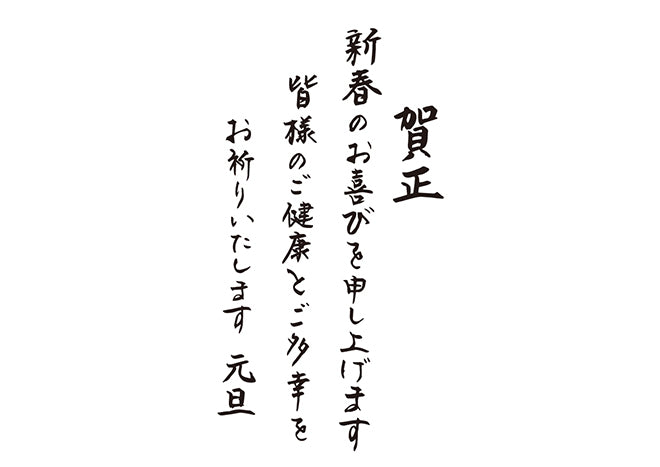 賀正
新春のお喜びを申し上げます
皆様のご健康とご多幸を
お祈りいたします 元旦